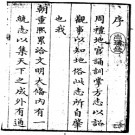 序
周禮地官誦訓掌方志以詔
觀事以知地俗此志所自肇
也我
朝重熙累洽文明備內有一
統志以集天下之成外有通